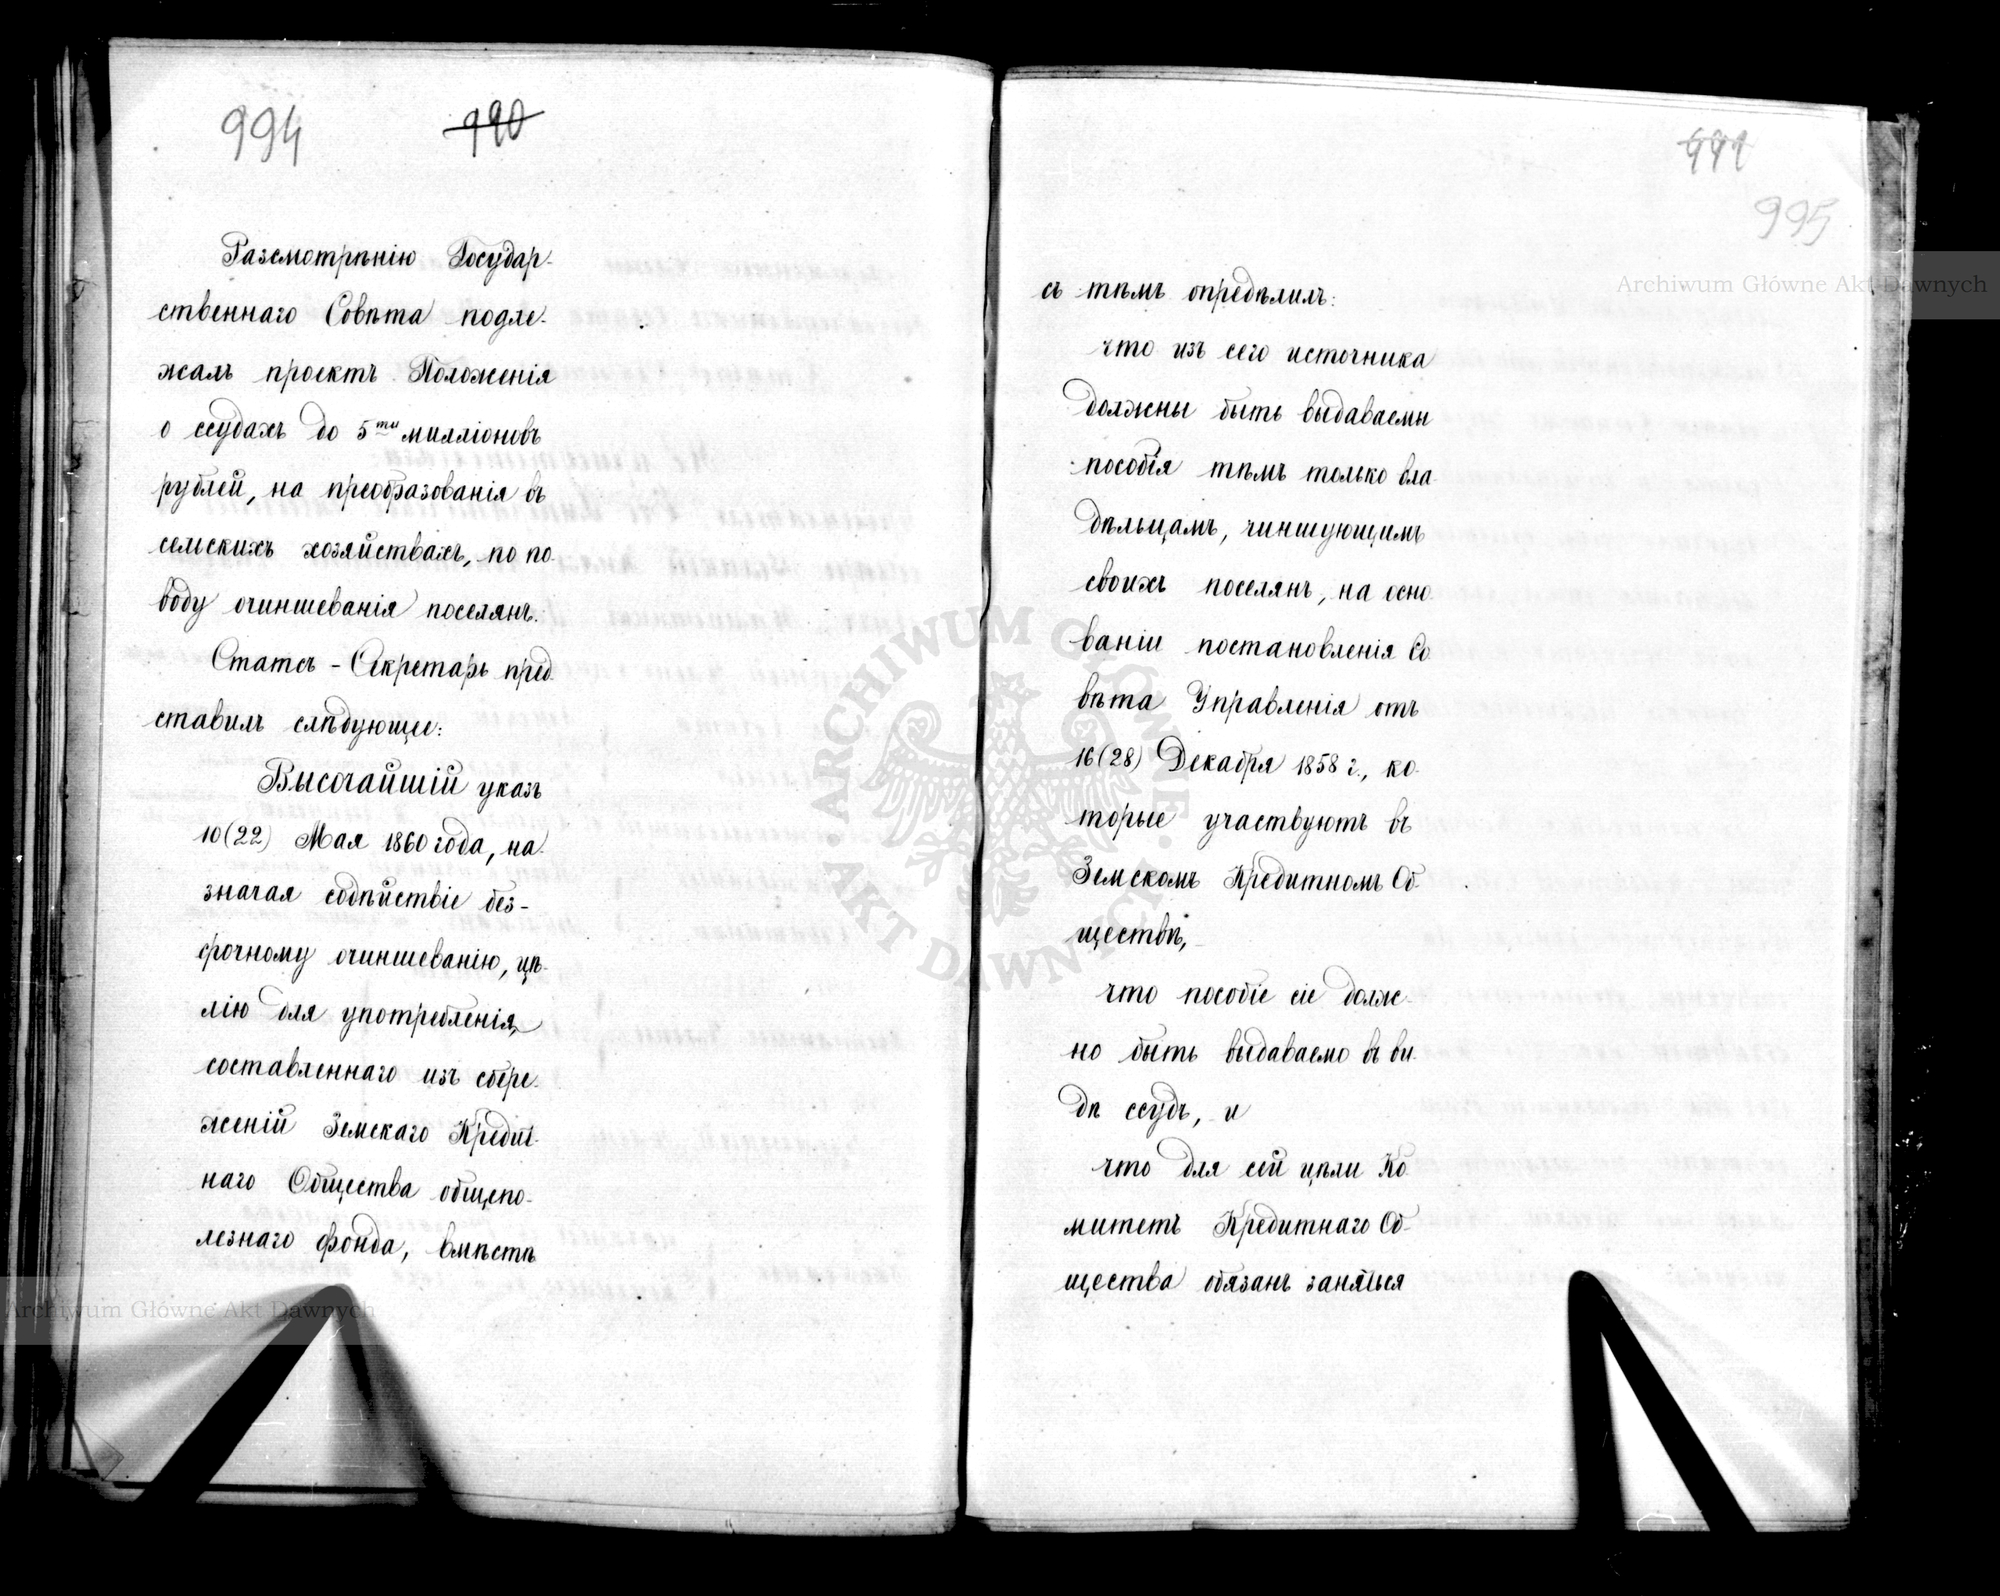 994 990
Разсмотрѣнію Государ-
ственнаго Совѣта подле-
жалъ проектъ Положенія
о ссудахъ до 5ти милліоновъ
рублей, на преобразованія въ
сельскихъ хозяйствахъ, по по-
воду очиншеванія поселянъ.
Статсъ-Секретарь пред-
ставилъ слѣдующее:
Высочайшій указъ
10(22) Мая 1860 года, на-
значая содѣйствіе без-
срочному очиншеванію, цѣ-
лію для употребленія,
составленнаго изъ сбере-
женій Земскаго Кредит-
наго Общества общепо-
лезнаго фонда, вмѣстѣ
991
995
съ тѣмъ опредѣлилъ:
что изъ сего источника
должны быть выдаваемы
пособія тѣмъ только вла-
дѣльцамъ, чиншующимъ
своихъ поселянъ, на осно-
ваніи постановленія Со-
вѣта Управленія отъ
16(28) Декабря 1858 г., ко-
торые участвуютъ въ
Земскомъ Кредитномъ Об-
ществѣ,
что пособіе сіе долж-
но быть выдаваемо въ ви-
дѣ ссудъ, и
что для сей цѣли Ко-
митетъ Кредитнаго Об-
щества обязанъ заняться
Archiwum Główne Akt Dawnych
Archiwum Główne Akt Dawnych
ARCHIWUM GŁÓWNE AKT DAWNYCH